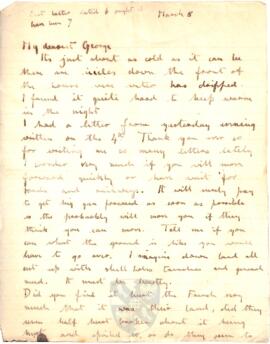 March 8
My dearest George
Its just about as cold as it can be
there are icicles down the front of
the house were water has dripped.
I found it quite hard to keep warm
in the night
I had a letter from yesterday evening
written on the 4th Thank you ever so
for writing me so many letters lately
I wonder very much if you will move
forward quickly or have wait for
roads and railways. It will surely pay
to get big guns forward as soon as possible
so the probably will move you if they
think you can move. Tell me if you
can what the ground is like you would
have to go over. I imagine down land all
cut up with shell holes trenches and general
mud. It must be beastly.
Did you find it that the French may
much that it was their land, did they
seem half heart about it being
hurt and spoiled to as do they seem to